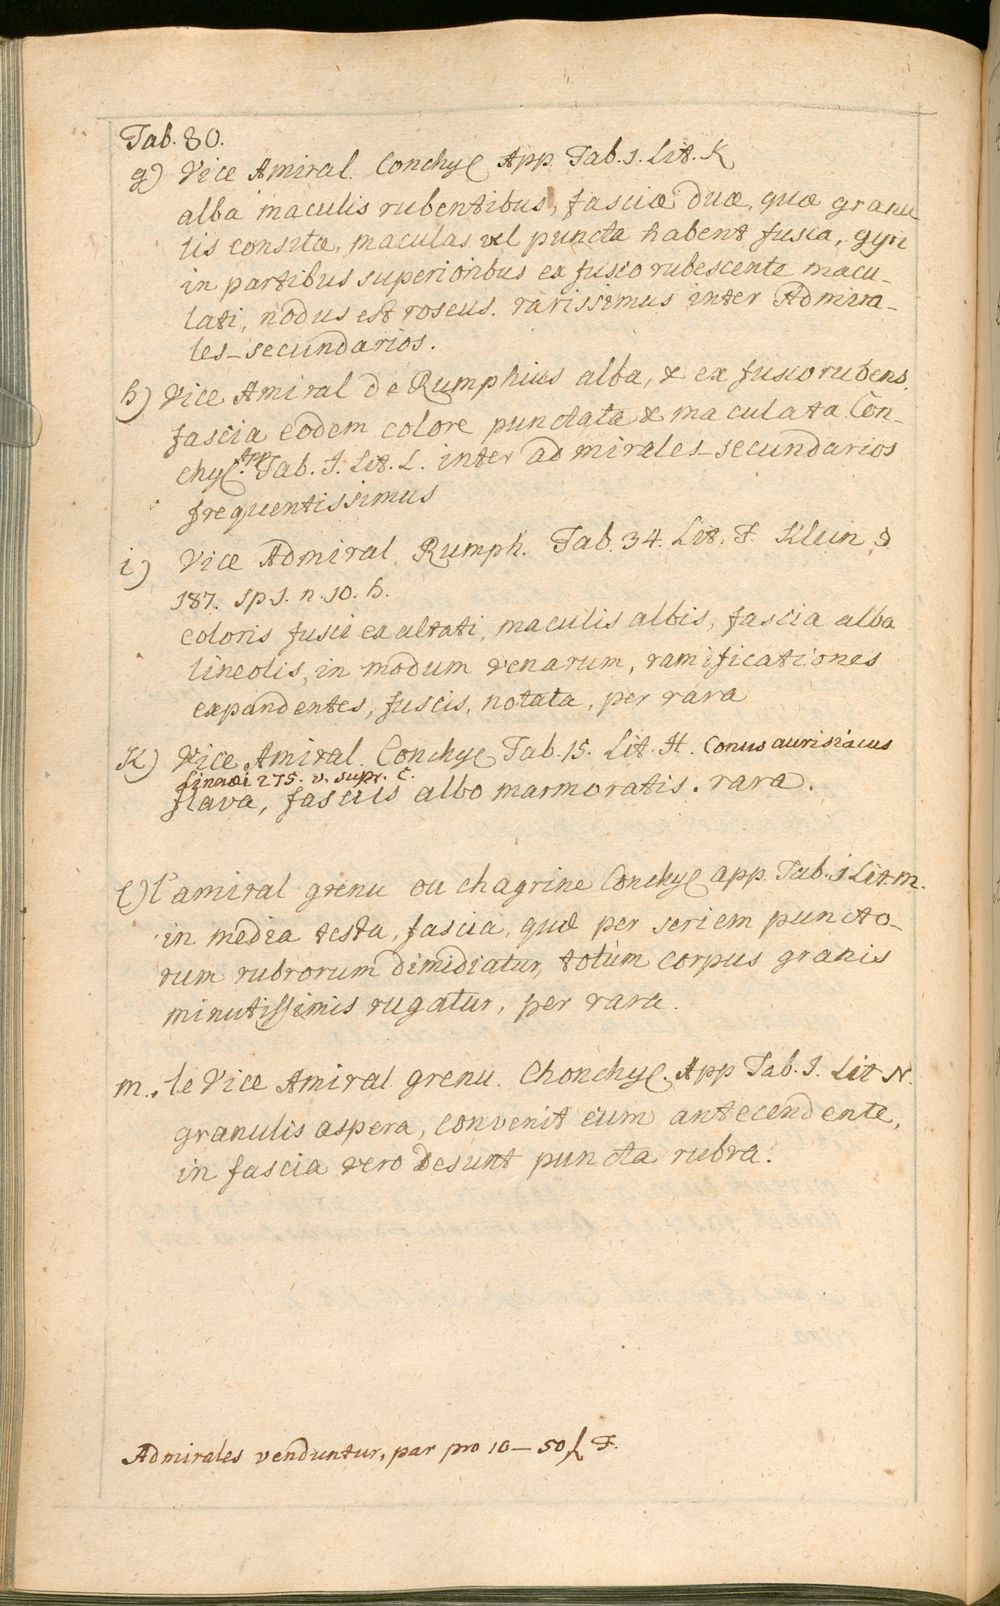 Tab. 80.
g) Vice Amiral. Conchyl App. Tab. I. Lit. K
alba maculis rubentibus, fasciæ duæ, quæ granu
lis consitæ, maculas vel puncta habent fusca, gyri
in partibus superioribus ex fusco rubescente macu-
lati, nodus est roseus. rarissimus inter Admira-
les-secundarios.
h) Vice Amiral de Rumphius alba, & ex fusco rubens
fascia eodem colore punctata & maculata Con-
chyl. App Tab. I. Lit. L. inter admirales-secundarios
frequentissimus
i) Vice Admiral. Rumph. Tab. 34. Lit. F. Klein §
187. sp 1. n. 10. h.
coloris fusci exaltati, maculis albis, fascia alba
lineolis, in modum venarum, ramificationes
expandentes, fuscis, notata, per rara
K) Vice Amiral. Conchyl Tab. 15. Lit. H. Conus aurisiacus
Linaei 275. v. supr. c.
flava, fasciis albo marmoratis. rara.
l) l'amiral grenu ou chagrine Conchyl app. Tab. I Lit. m.
in media testa, fascia, quæ per seriem puncto-
rum rubrorum dimidiatur, totum corpus granis
minutissimis rugatur, per rara.
m. le Vice Amiral grenu. Chonchyl. App Tab. I. Lit N.
granulis aspera, convenit cum antecendente,
in fascia vero desunt puncta rubra.
Admirales venduntur, par pro 10 — 50 f. F.